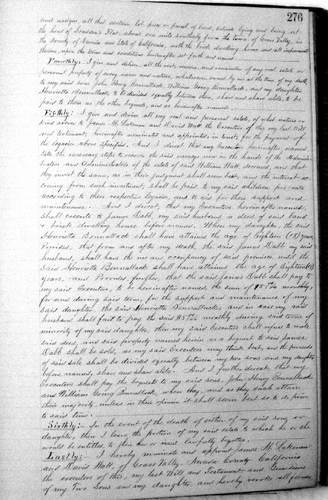 276
and assigns, all that certain lot, piece or parcel of land, situate lying and being at
the head of Boston's Flat, about one mile southerly from the town of Grass Valley, in
the County of Nevada and State of California, with the brick dwelling house and all improvements
thereon, upon the terms and conditions hereinafter set forth and named.
Fourthly: I give and devise, all the rest, residue, and remainder of my real estate or
personal property of every name and nature, whatsoever, owned by me at the time of my death
to my said sons John Henry and William Henry and my daughter
Henrietta to be divided equally between them, share and share alike, to be
paid to them as the other bequests, and as hereinafter named.
Fifthly: I give and devise all my real and personal estate, of what nature or
kind soever to James M. and David Watt the Executors of this my last Will
and testament, hereinafter nominated and appointed in trust, for the payment of
the legacies above specified. And I direct that my Executors hereinafter named,
take the necessary steps to receive the said moneys now in the hands of the Administrators
and of the estate of said William Watt deceased, and that
they invest the same, as in their judgment shall seem best, and the interest accruing
from such investment, shall be paid to my said children, pro rata
according to their respective legacies, and to aid for their support and
maintenance. And I direct, that my Executors hereinafter named,
shall execute to James Watt, my said husband, a deed of said land
& brick dwelling house before named. When my daughter, the said
Henrietta shall have attained the age of eighteen (18) years,
Provided, that from and after my death the said James Watt my said
husband, shall have the use and occupancy of said premises, until the
said Henrietta shall have attained the age of eighteen (18)
years, and Provided further, that the said James Watt shall pay to
my said Executors, to be hereinafter named, the sum of $57 50/100 monthly,
for and during said term, for the support and maintenance of my
said daughter, the said Henrietta and in case my said
husband shall fail to pay the said $57 50/100 monthly during said term of
minority of my said daughter, then my said Executors shall refuse to make
said deed, and said property named herein as a bequest to said James
Watt shall be sold, as my said Executors may think best, and the proceeds
of said sale shall be divided equally between my two sons and my daughter
before named, share and share alike. And I further direct that my
Executors shall pay the bequests to my said sons, John Henry
and William Henry, when they, and as they shall attain
their majority, unless in their opinion it shall seem best so to do prior
to said time.
Sixthly: In the event of the death of either of my said sons or
daughter, then I leave the portion of my said estate to which he or she
would be entitled to the or more lawfully begotten.
Lastly: I hereby nominate and appoint James M.
and David Watt, of Grass Valley, Nevada County, California
the executors of this, my last Will and Testament, and Guardians
of my two Sons and my daughter, and hereby revoke all former